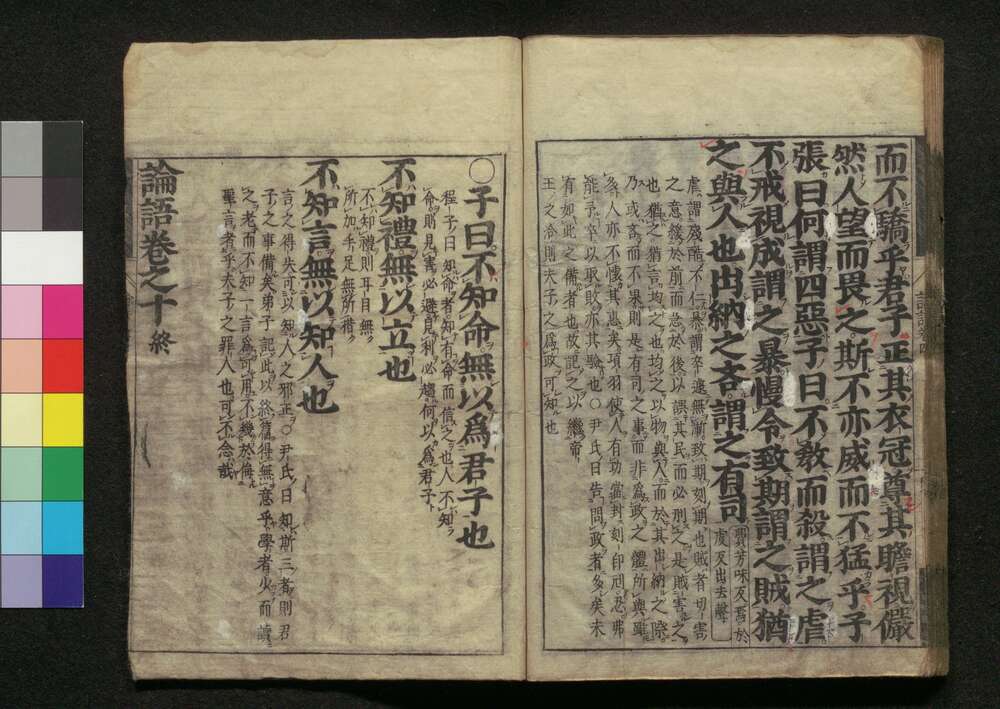 而不驕乎君子正其衣冠尊其瞻視儼
然人望而畏之斯不亦威而不猛乎子
張曰何謂四惡子曰不敎而殺謂之虐
不戒視成謂之暴慢令致期謂之賊猶
之與人也出納之吝謂之有司
虐謂殘酷不仁暴謂卒遽無漸致期刻期也賊者切害
之意緩於前而急於後以誤其民而必刑之是賊害之
也猶之猶言均之也均之以物與人而於其出納之際
乃或吝而不果則是有司之事而非爲政之體所與雖
多人亦不懷其惠矣項羽使人有功當封刻印刓忍弗
能予卒以取敗亦其驗也○尹氏曰告問政者多矣未
有如此之備者也故記之以繼帝
王之治則夫子之爲政可知也
○子曰不知命無以爲君子也
程子曰知命者知有命而信之也人不知
命則見害必避見利必趨何以爲君子
不知禮無以立也
不知禮則耳目無
所加手足無所措
不知言無以知人也
言之得失可以知人之邪正○尹氏曰知斯三者則君
子之事備矣弟子記此以終篇得無意乎學者少而讀
之老而不知一言爲可用不幾於侮
聖言者乎夫子之罪人也可不念哉
論語卷之十 終